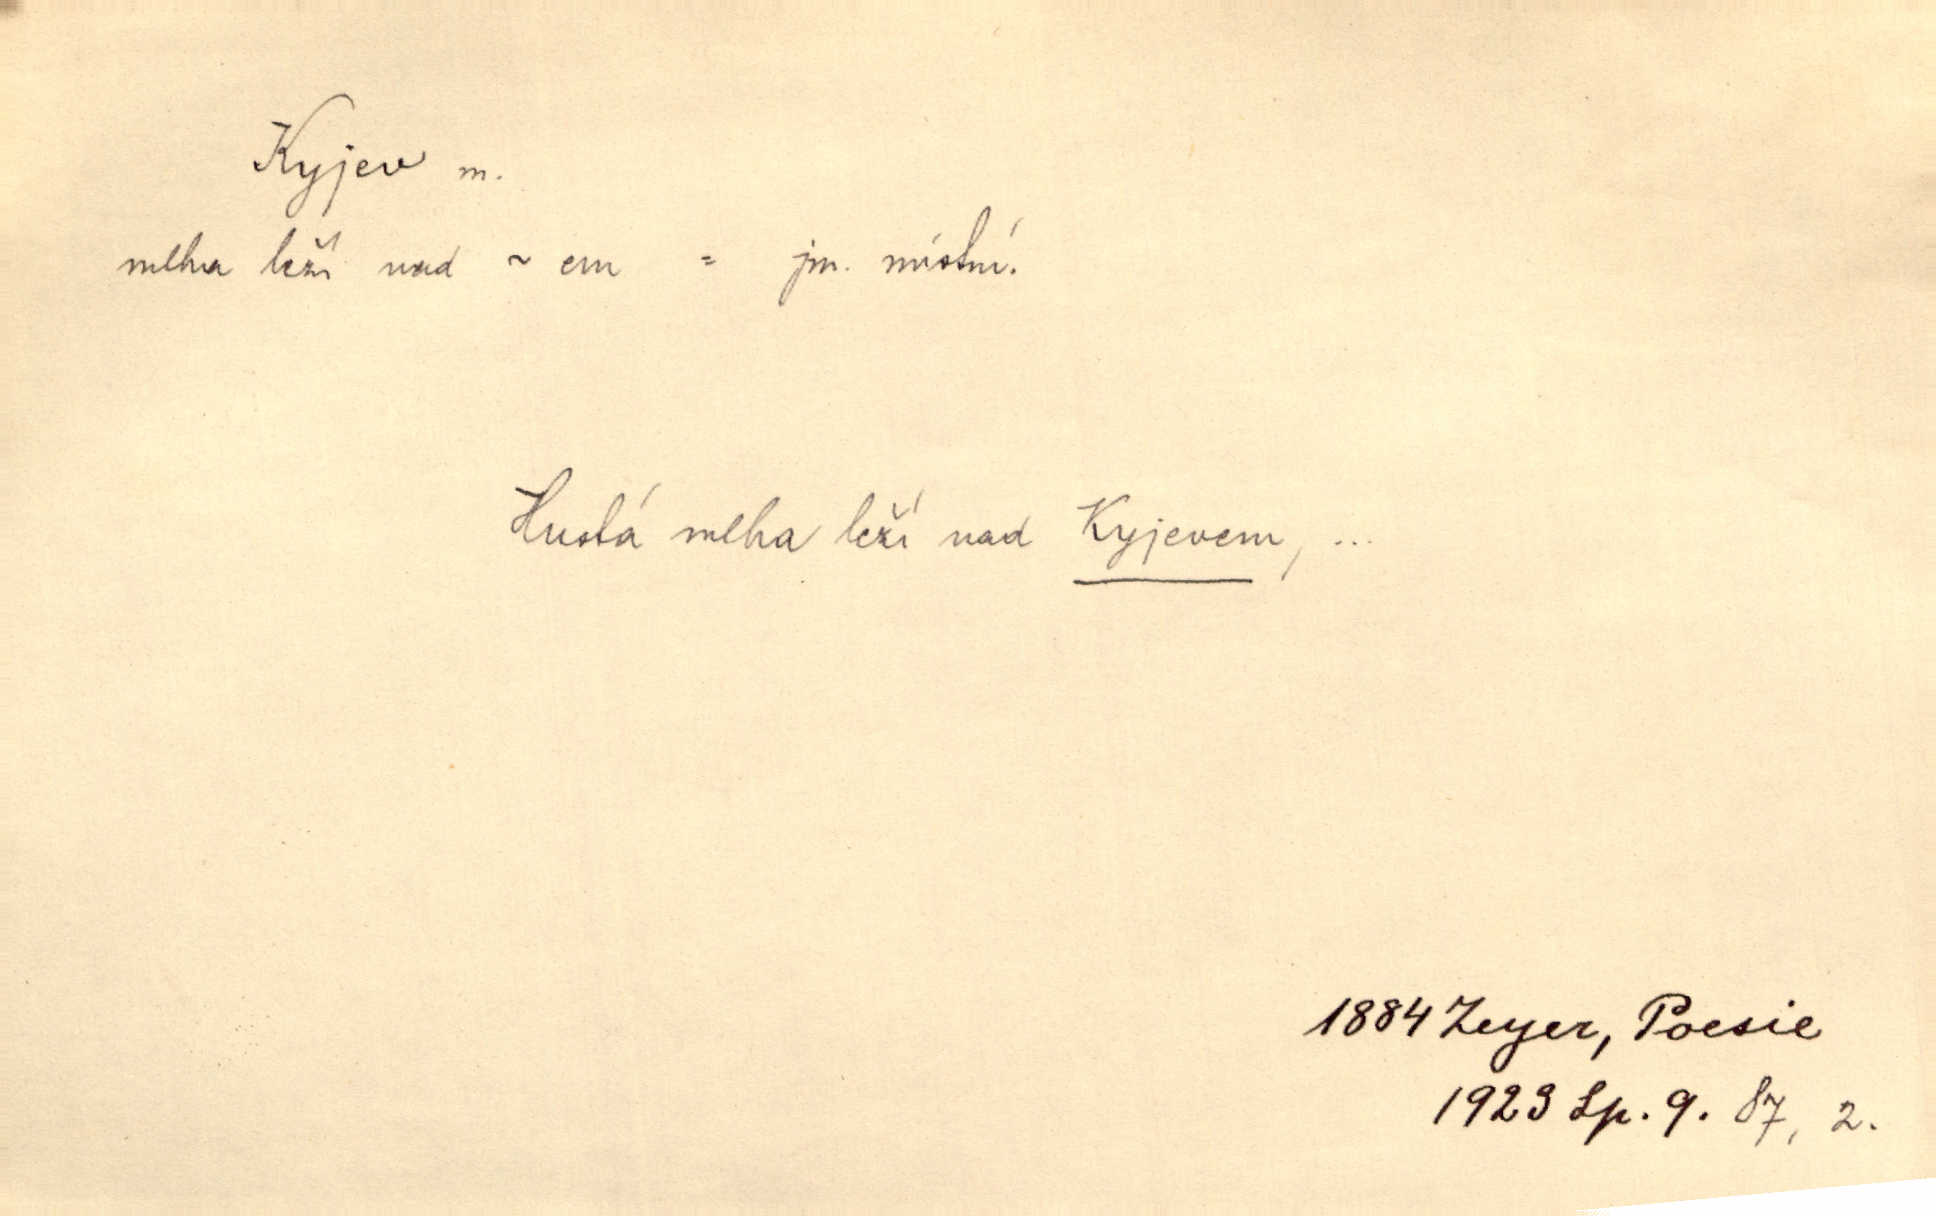 Kyjev m.
mlha leží nad ~ em = jm. místní.
Hustá mlha leží nad Kyjevem, ...
1884 Zeyer, Poesie
1923 Sp. 9. 87, 2.